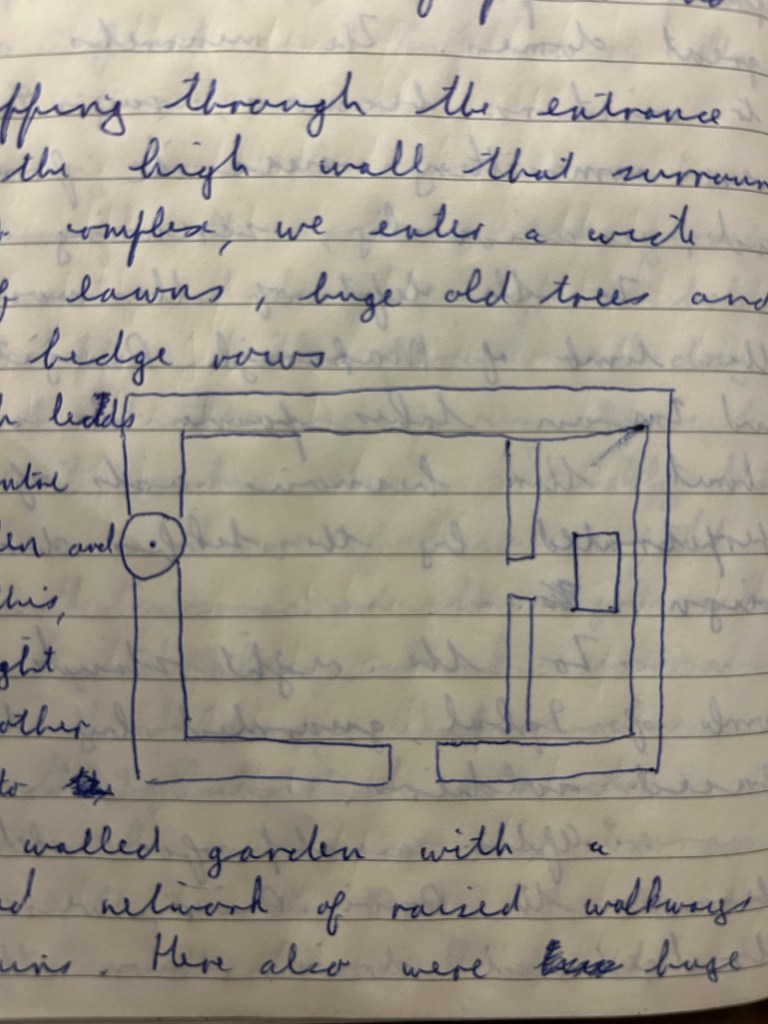 pping through the entrance
the high wall that surroun
complex, we enter a wide
f lawns, huge old trees and
hedge rows
h leads
ntre
en and
his,
ght
other
to
walled garden with a
d network of raised walkways
uins. Here also were huge